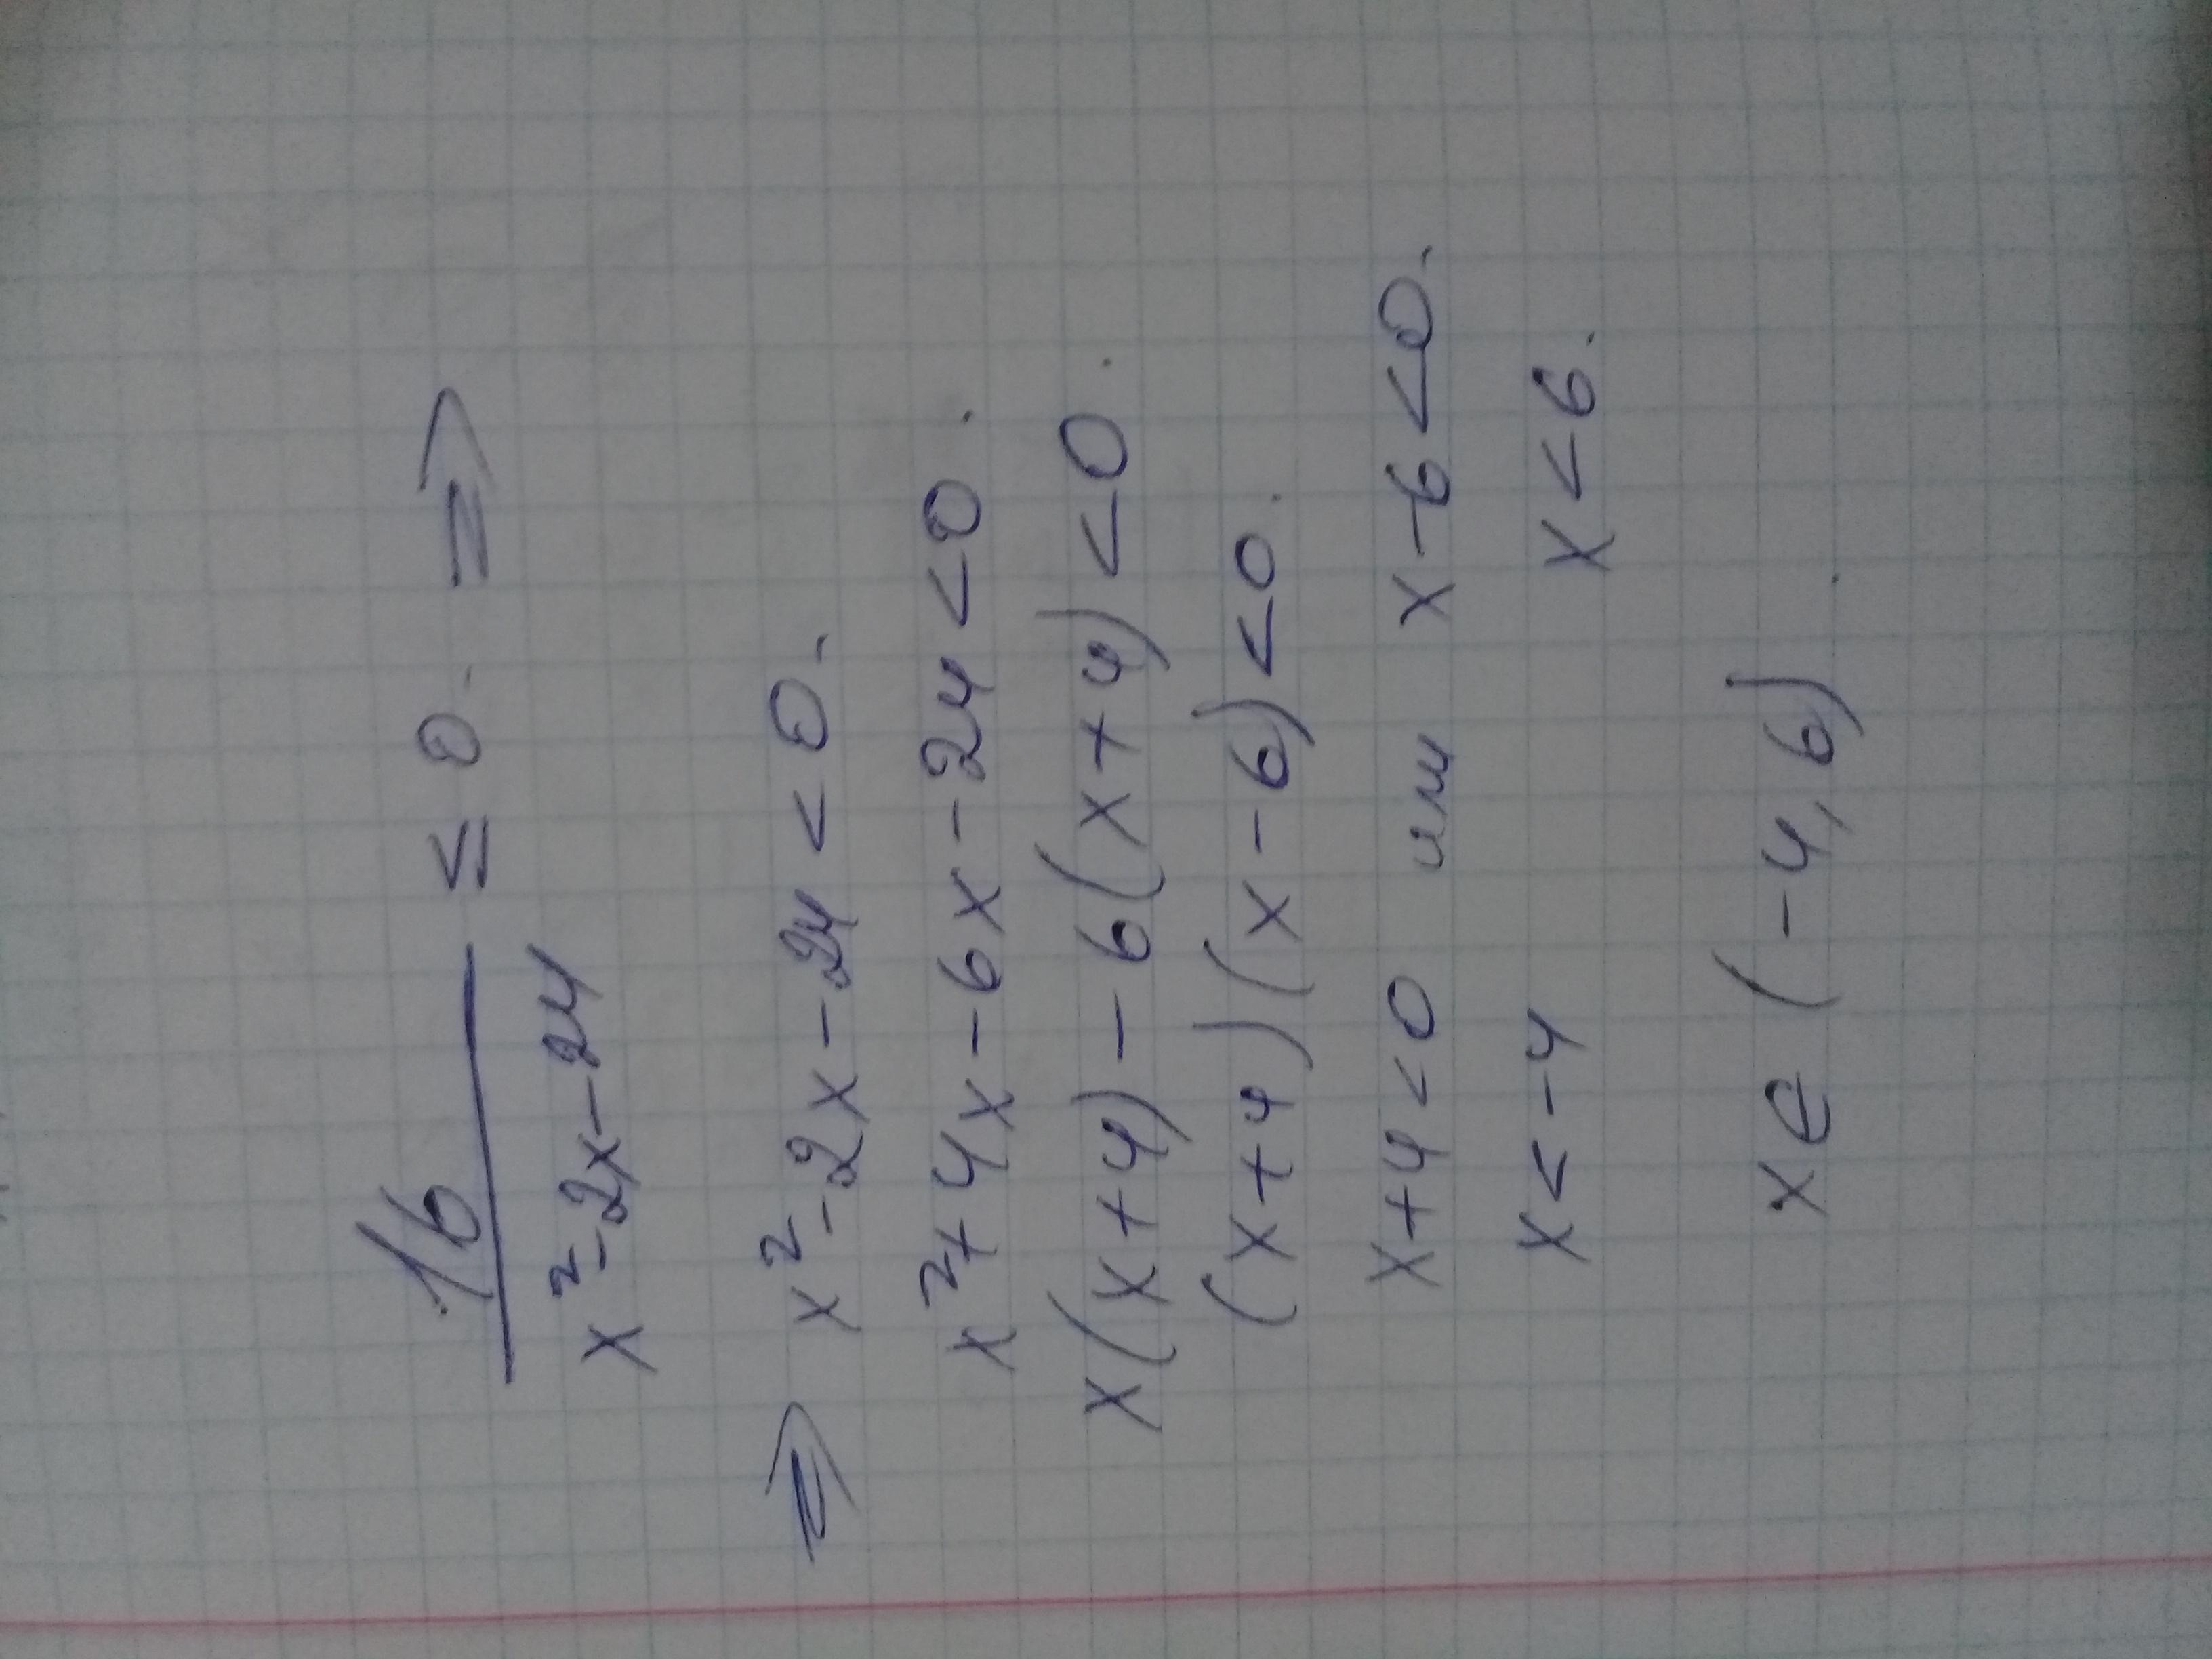 16
x²-2x-24 ≤ 0. ⇒
⇒ x²-2x-24 < 0.
x²+4x-6x-24 < 0.
x(x+4)-6(x+4) < 0.
(x+4)(x-6) < 0.
x+4 < 0 или x-6 < 0.
x < -4 x < 6.
x ∈ (-4, 6).